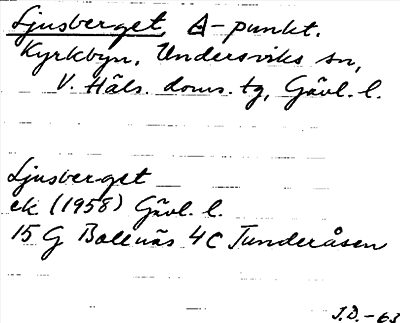 Ljusberget, A-punkt.
Kyrkbyn, Undersviks sn,
V. Häls. doms. tg, Gävl. l.
Ljusberget
ek (1958) Gävl. l.
15 G Bollnäs 4 C Tunderåsen
J.D.-63